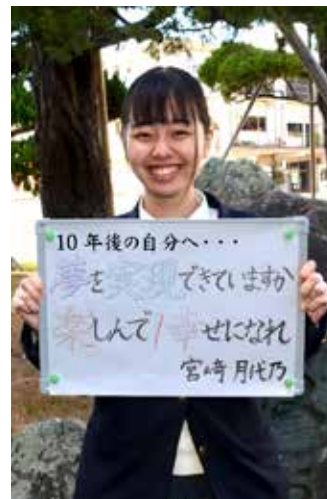 10年後の自分へ・・・
夢を実現できていますか
楽しんで！幸せになれ
宮崎